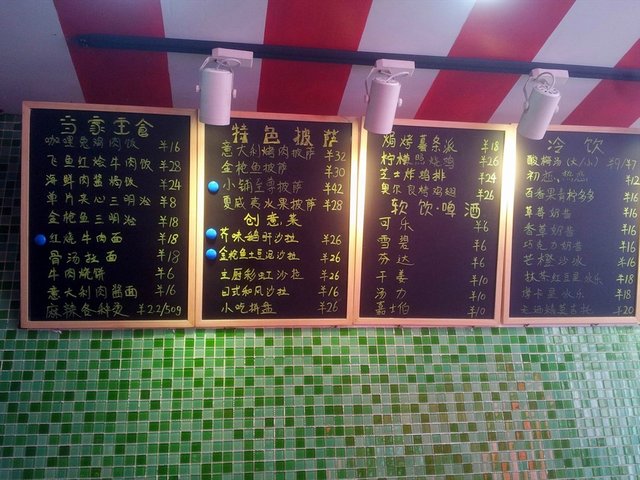 当家主食
咖喱兔鸡肉饭 ¥16
飞鱼红烩牛肉饭 ¥28
海鲜肉酱焗饭 ¥24
单片夹心三明治 ¥8
金枪鱼三明治 ¥8
红烧牛肉面 ¥18
骨汤拉面 ¥18
牛肉烧饼 ¥6
意大利肉酱面 ¥16
麻辣香锅 ¥22/50g
特色披萨
意大利焗肉披萨 ¥32
金枪鱼披萨 ¥30
小镇至尊披萨 ¥42
夏威夷水果披萨 ¥28
创意菜
芥味鹅肝沙拉 ¥26
金枪鱼土豆泥沙拉 ¥26
主厨彩虹沙拉 ¥26
日式和风沙拉 ¥16
小吃拼盘 ¥26
焗烤薯条派 ¥18
柠檬照烧鸡 ¥26
芝士炸鸡排 ¥24
奥尔良烤鸡翅 ¥26
软饮·啤酒
可乐 ¥6
雪碧 ¥6
芬达 ¥6
干姜 ¥10
汤力 ¥10
嘉士伯 ¥10
冷饮
酸梅汤(大/小) ¥9/¥7
初恋、热恋 ¥12
百香果青柠多多 ¥16
草莓奶昔 ¥16
香草奶昔 ¥16
巧克力奶昔 ¥16
芒橙沙冰 ¥16
抹茶红豆星冰乐 ¥18
摩卡星冰乐 ¥18
¥20